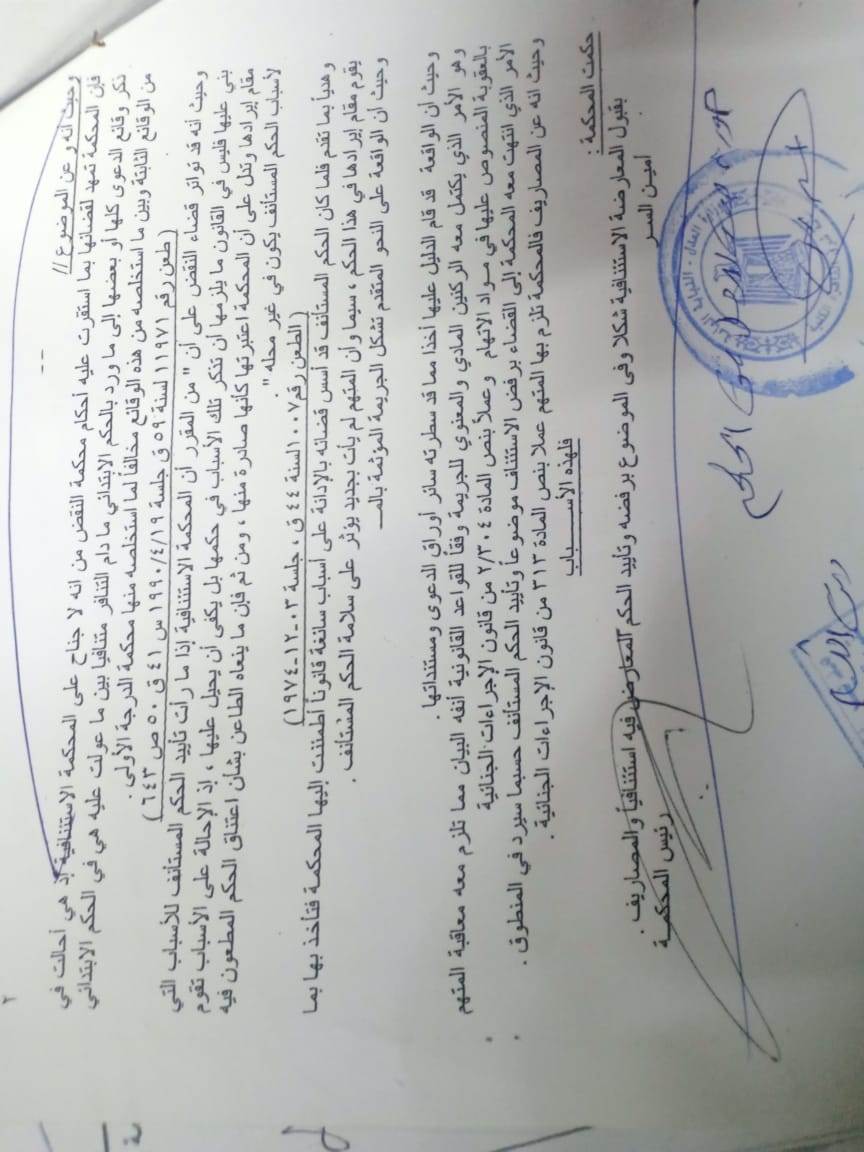 ٢
وحيث أنه وعن الموضوع //
فإن المحكمة تمهد لقضائها بما استقرت عليه أحكام محكمة النقض من انه لا جناح على المحكمة الاستئنافية إذ هي أحالت في
ذكر وقائع الدعوى كلها أو بعضها إلى ما ورد بالحكم الابتدائي ما دام التنافر متنافيا بين ما عولت عليه هي في الحكم الابتدائي
من الوقائع الثابتة وبين ما استخلصه من هذه الوقائع مخالفاً لما استخلصه منها محكمة الدرجة الأولى .
( طعن رقم ١١٩٧١ لسنة ٥٩ ق جلسة ١٩٩٠/٤/١٩ س ٤١ ق ٥٠ ص ٦٤٣ )
وحيث أنه قد تواتر قضاء النقض على أن " من المقرر أن المحكمة الاستئنافية إذا ما رأت تأييد الحكم المستأنف للأسباب التي
بني عليها فليس في القانون ما يلزمها أن تذكر تلك الأسباب في حكمها بل يكفى أن يحيل عليها ، إذ الإحالة على الأسباب تقوم
مقام إيرادها وتدل على أن المحكمة اعتبرتها كأنها صادرة منها ، ومن ثم فإن ما ينعاه الطاعن بشأن اعتناق الحكم المطعون فيه
لأسباب الحكم المستأنف يكون في غير محله "
( الطعن رقم ١٠٠٧ لسنة ٤٤ ق ، جلسة ٠٣-١٢-١٩٧٤ )
وهدياً بما تقدم فلما كان الحكم المستأنف قد أسس قضائه بالإدانة على أسباب سائغة قانوناً أطمئنت إليها المحكمة فتأخذ بها بما
يقوم مقام إيرادها في هذا الحكم ، سيما وأن المتهم لم يأت بجديد يؤثر على سلامة الحكم المستأنف .
وحيث أن الواقعة على النحو المتقدم تشكل الجريمة المؤثمة بالمـ
وحيث أن الواقعة قد قام الدليل عليها أخذا مما قد سطرته سائر أوراق الدعوى ومستنداتها .
وهو الأمر الذي يكتمل معه الركنين المادي والمعنوي للجريمة وفقاً للقواعد القانونية أنفه البيان مما تلزم معه معاقبة المتهم
بالعقوبة المنصوص عليها في مواد الاتهام وعملاً بنص المادة ٢/٣٠٤ من قانون الإجراءات الجنائية
الأمر الذي انتهت معه المحكمة إلى القضاء برفض الاستئناف موضوعاً وتأييد الحكم المستأنف حسبما سيرد في المنطوق .
وحيث انه عن المصاريف فالمحكمة تلزم بها المتهم عملا بنص المادة ٣١٣ من قانون الإجراءات الجنائية .
فلهذه الأســباب
حكمت المحكمة :
بقبول المعارضة الاستئنافية شكلا وفى الموضوع برفضه وتأييد الحكم المعارض فيه استئنافياً والمصاريف .
أمين السر
رئيس المحكمة